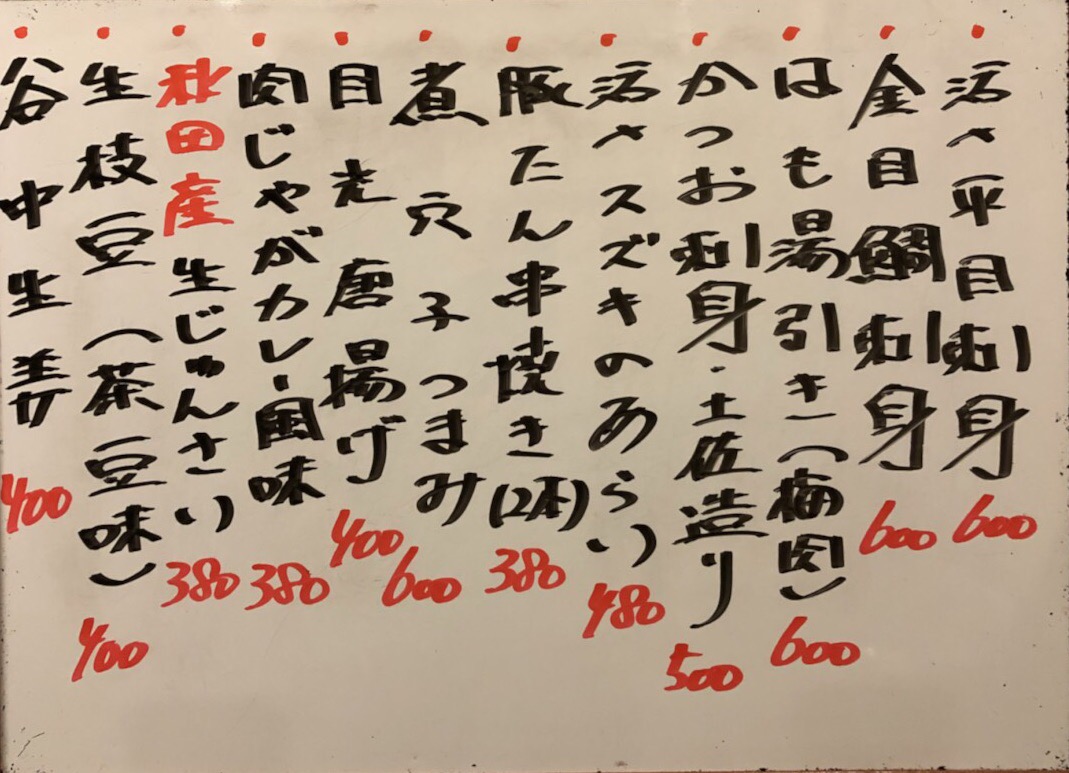 活〆平目刺身 600
金目鯛刺身 600
はも湯引き(梅肉) 600
かつお刺身・土佐造り 500
活〆スズキのあらい 480
豚たん串焼き(2本) 380
煮穴子つまみ 600
目光唐揚げ 400
肉じゃがカレー風味 380
秋田産生じゅんさい 380
生枝豆(茶豆味) 400
谷中生姜 400